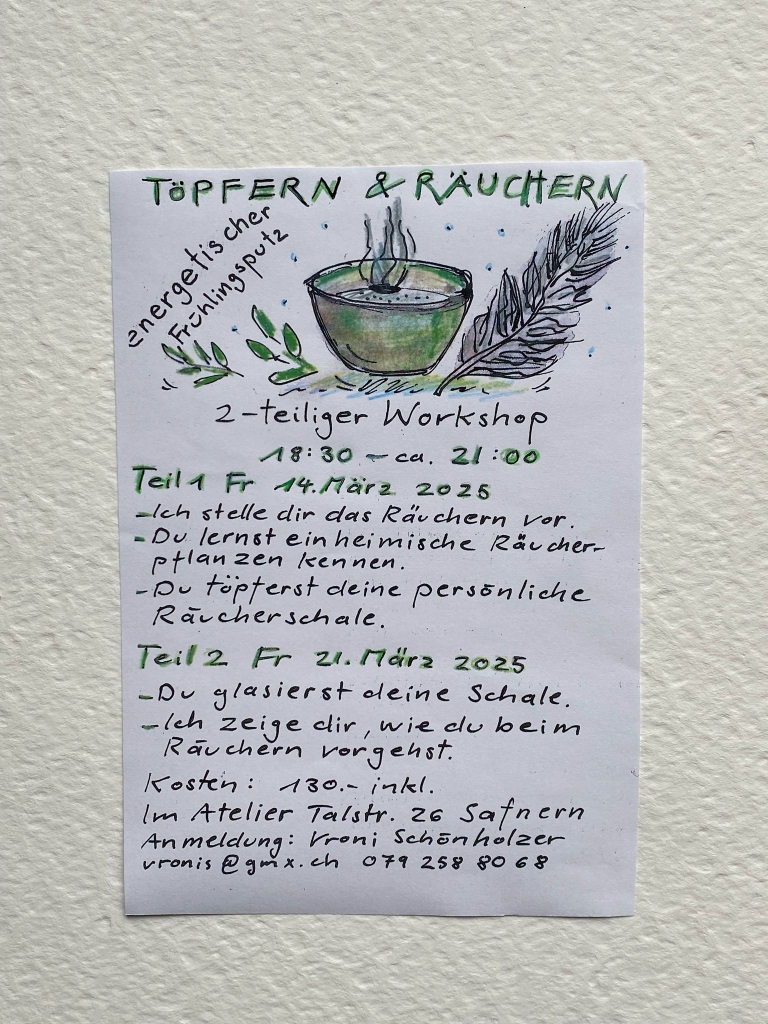 TÖPFERN & RÄUCHERN
energetischer
Frühlingsputz
2-teiliger Workshop
18:30 - ca. 21:00
Teil 1 Fr 14. März 2025
- Ich stelle dir das Räuchern vor.
- Du lernst einheimische Räucher-
pflanzen kennen.
- Du töpferst deine persönliche
Räucherschale.
Teil 2 Fr 21. März 2025
- Du glasierst deine Schale.
- Ich zeige dir, wie du beim
Räuchern vorgehst.
Kosten: 130.- inkl.
Im Atelier Talstr. 26 Safnern
Anmeldung: Vroni Schönholzer
vronis@gmx.ch 079 258 80 68